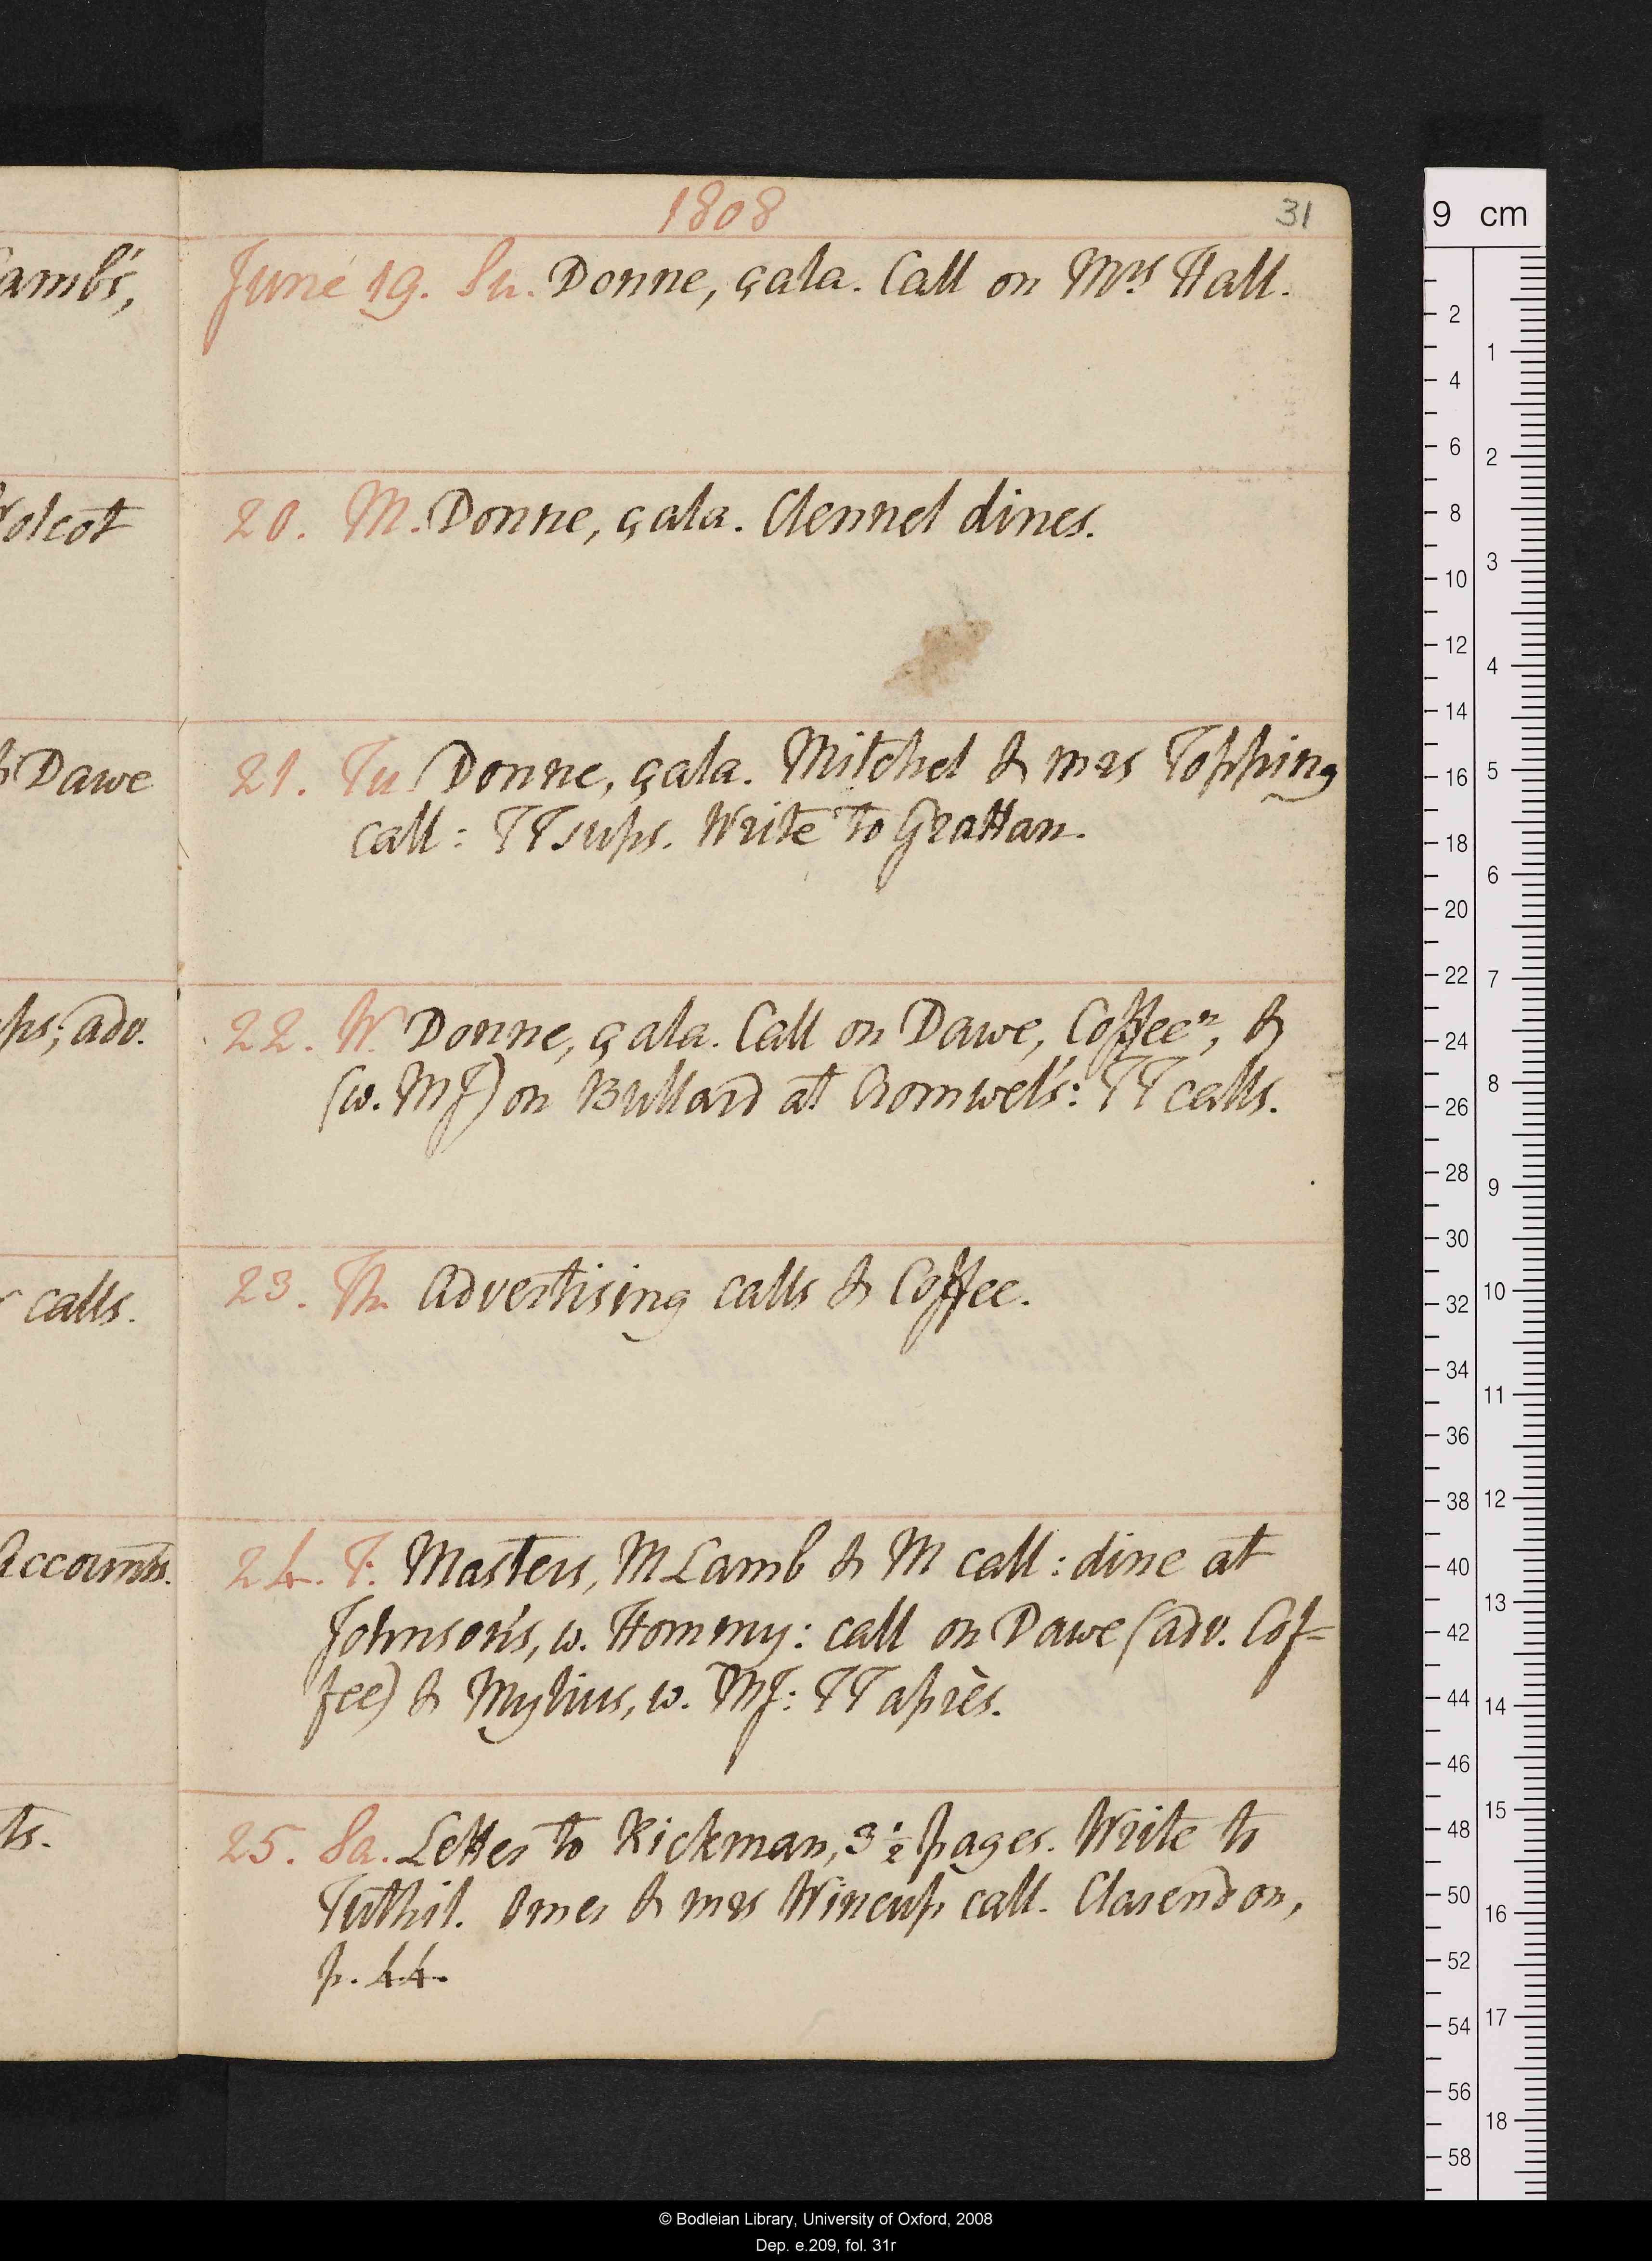 1808
31
ambs,
June 19. Su. Donne, çala. Call on Mrs Hall.
olcot
20. M. Donne, çala. Clennel dines.
Dawe
21. Tu Donne, çala. Mitchel & mrs Topping
call: TT sups. Write to Grattan.
ps; adv.
22. W. Donne, çala. Call on Dawe, Coffeen, &
(w. MJ) on Bullard at Cromwel's: TT calls.
calls.
23. Th. Advertising calls & Coffee.
Accounts.
24. F. Masters, M Lamb & M call: dine at
Johnson's, w. Hommy: call on Dawe (adv. Cof=
fee) & Mylius, w. MJ: TT après.
ts.
25. Sa. Letter to Rickman, 3½ pages. Write to
Tuthil. Omer & mrs Wincup call. Clarendon,
p. 44.
9 cm
2
4
6
8
10
12
14
16
18
20
22
24
26
28
30
32
34
36
38
40
42
44
46
48
50
52
54
56
58
1
2
3
4
5
6
7
8
9
10
11
12
13
14
15
16
17
18
© Bodleian Library, University of Oxford, 2008
Dep. e.209, fol. 31r